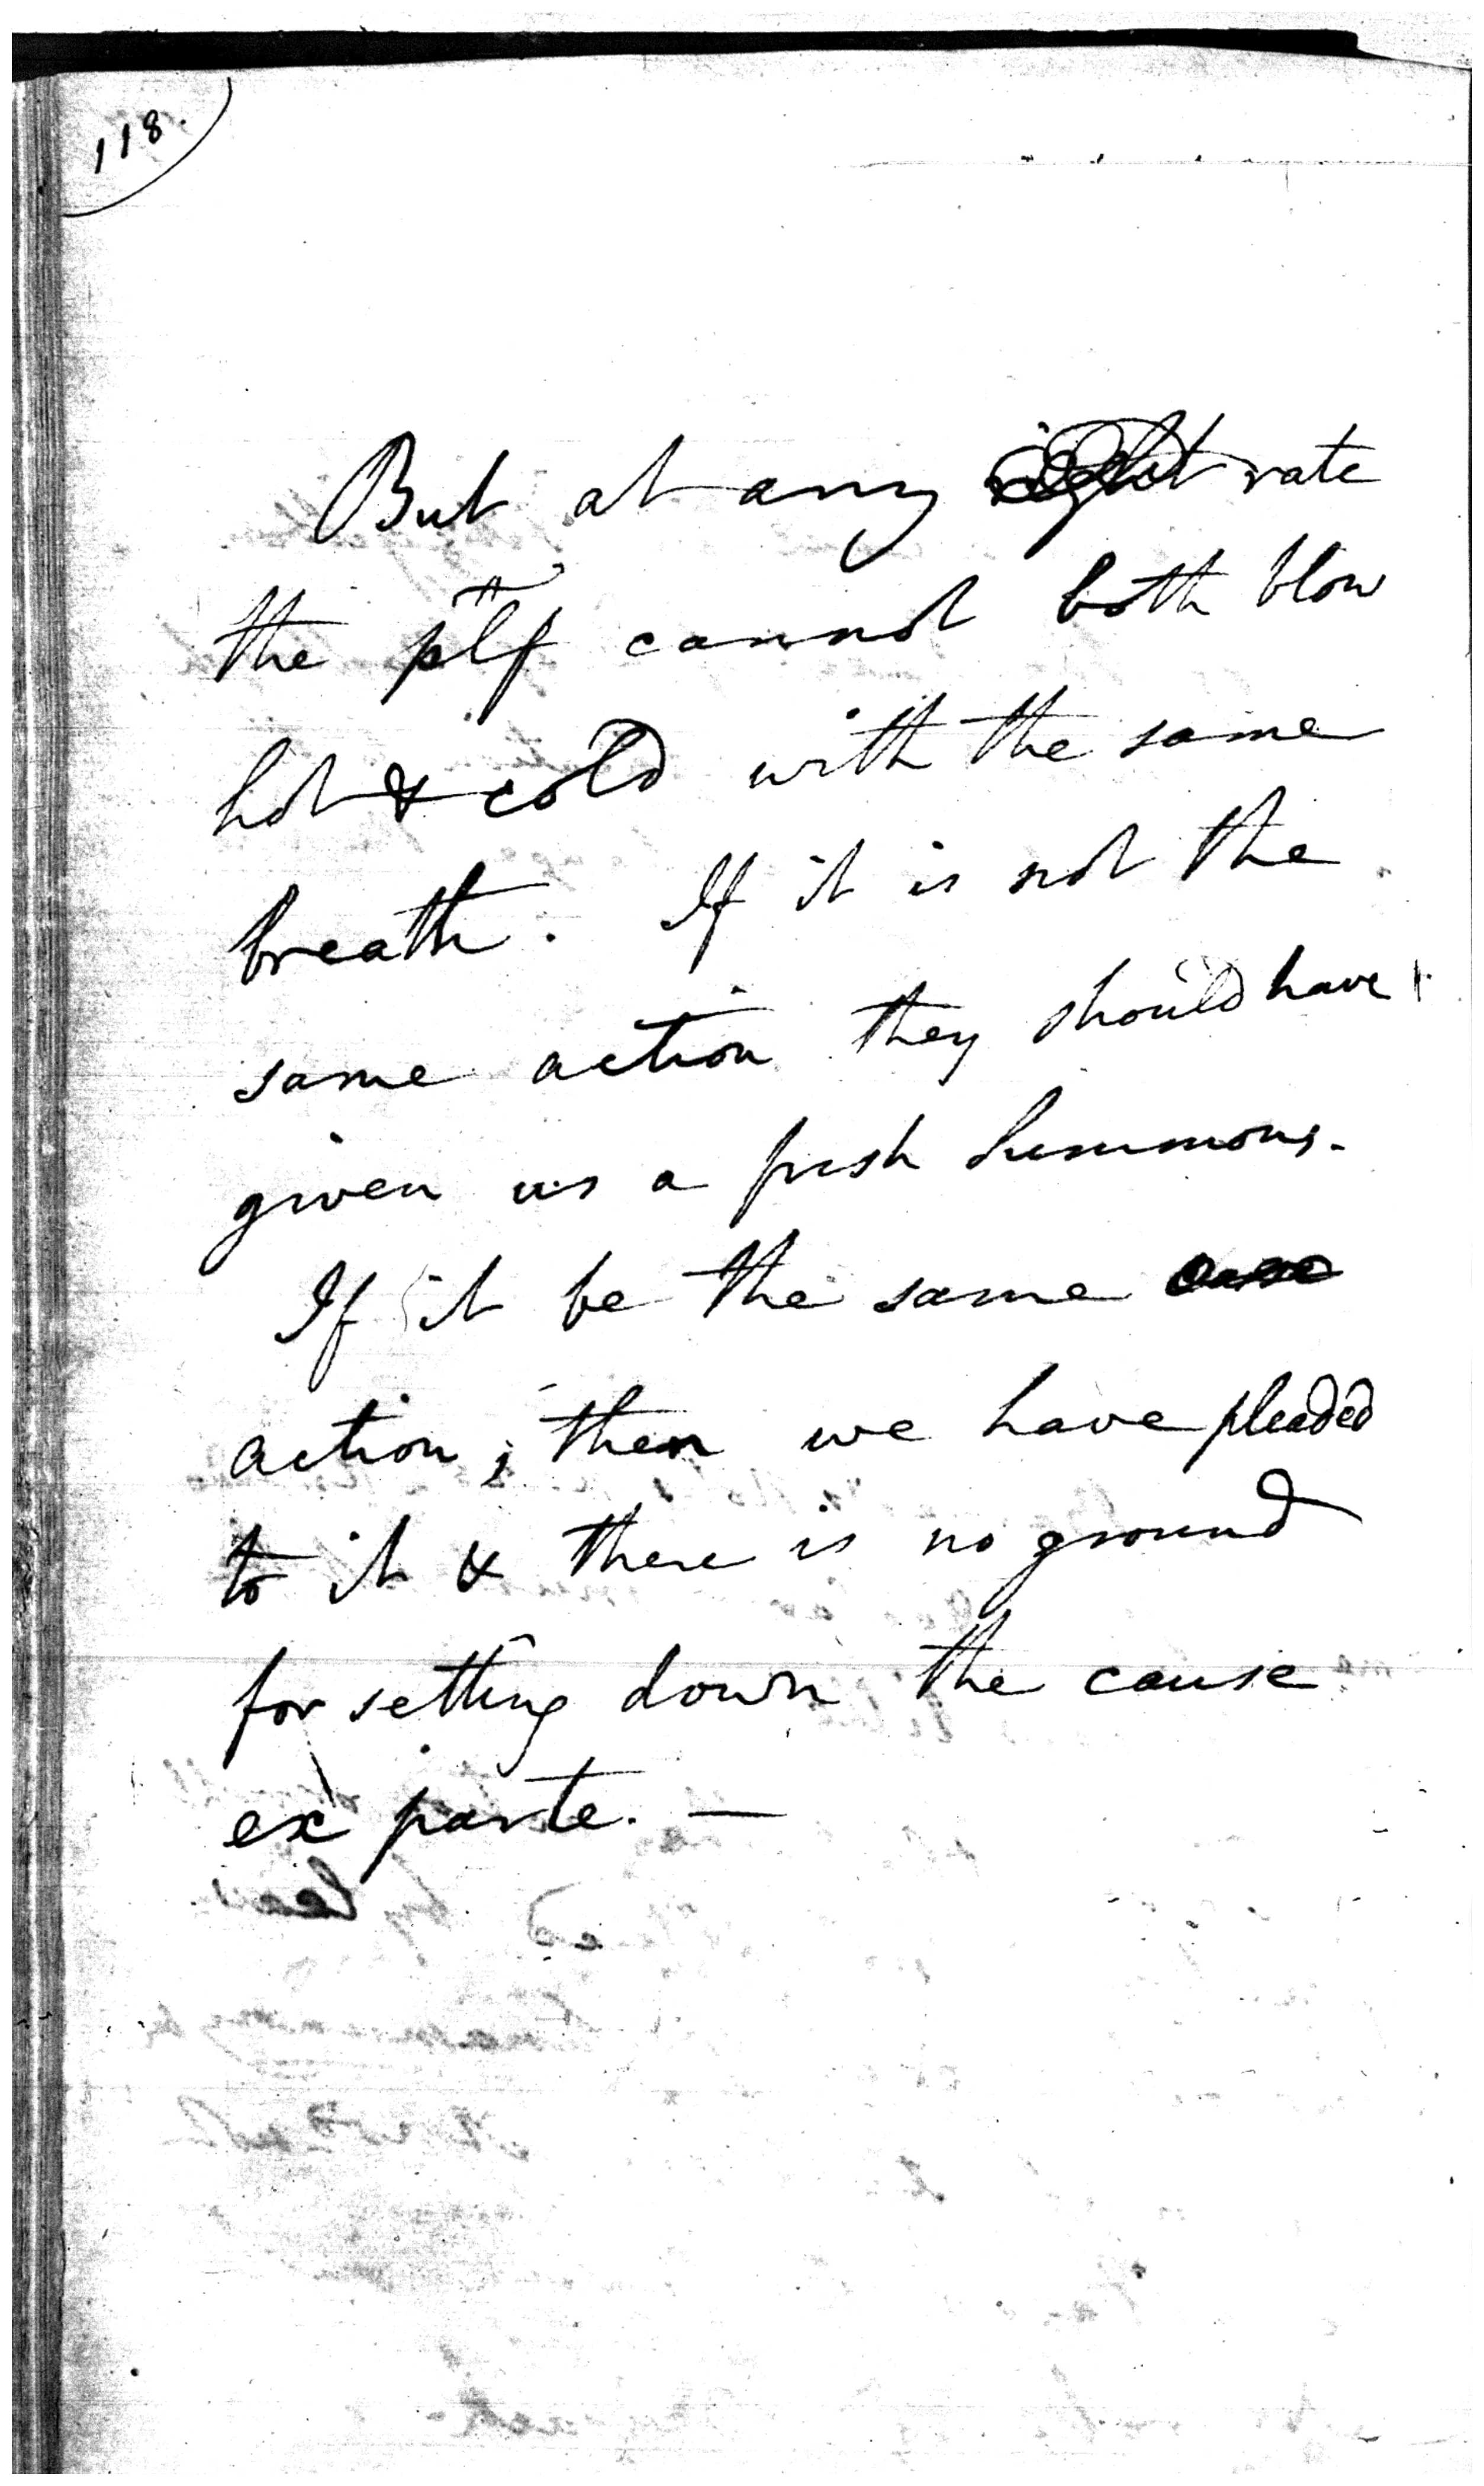 118.
But at any right rate
the plff cannot both blow
hot & cold with the same
breath. If it is not the
same action they should have
given us a fresh summons.
If it be the same case
action; then we have pleaded
to it & there is no ground
for setting down the cause
ex parte. —